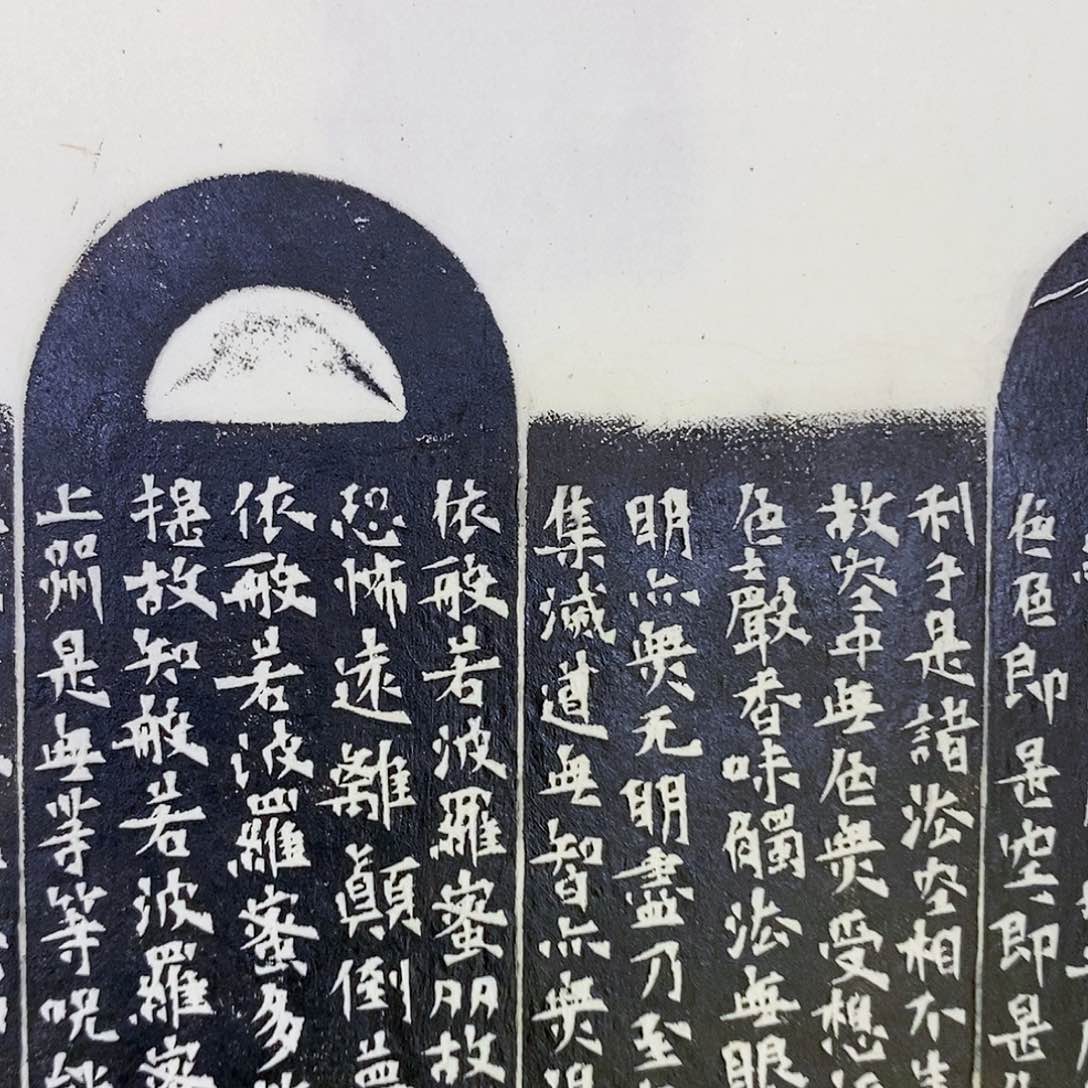 色色即是空〻即是
利子是諸法空相不生
故空中無色無受想
色聲香味觸法無眼
明亦無无明盡乃至
集滅道無智亦無得
依般若波羅蜜多故
恐怖遠離顛倒
依般若波羅蜜多
提故知般若波羅蜜
上咒是無等等呪